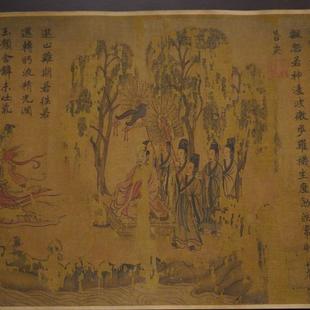 飄忽若神凌波微步羅襪生塵動無常則若
若安
進止難期若往若
還轉眄流精光潤
玉顏含辭未吐氣